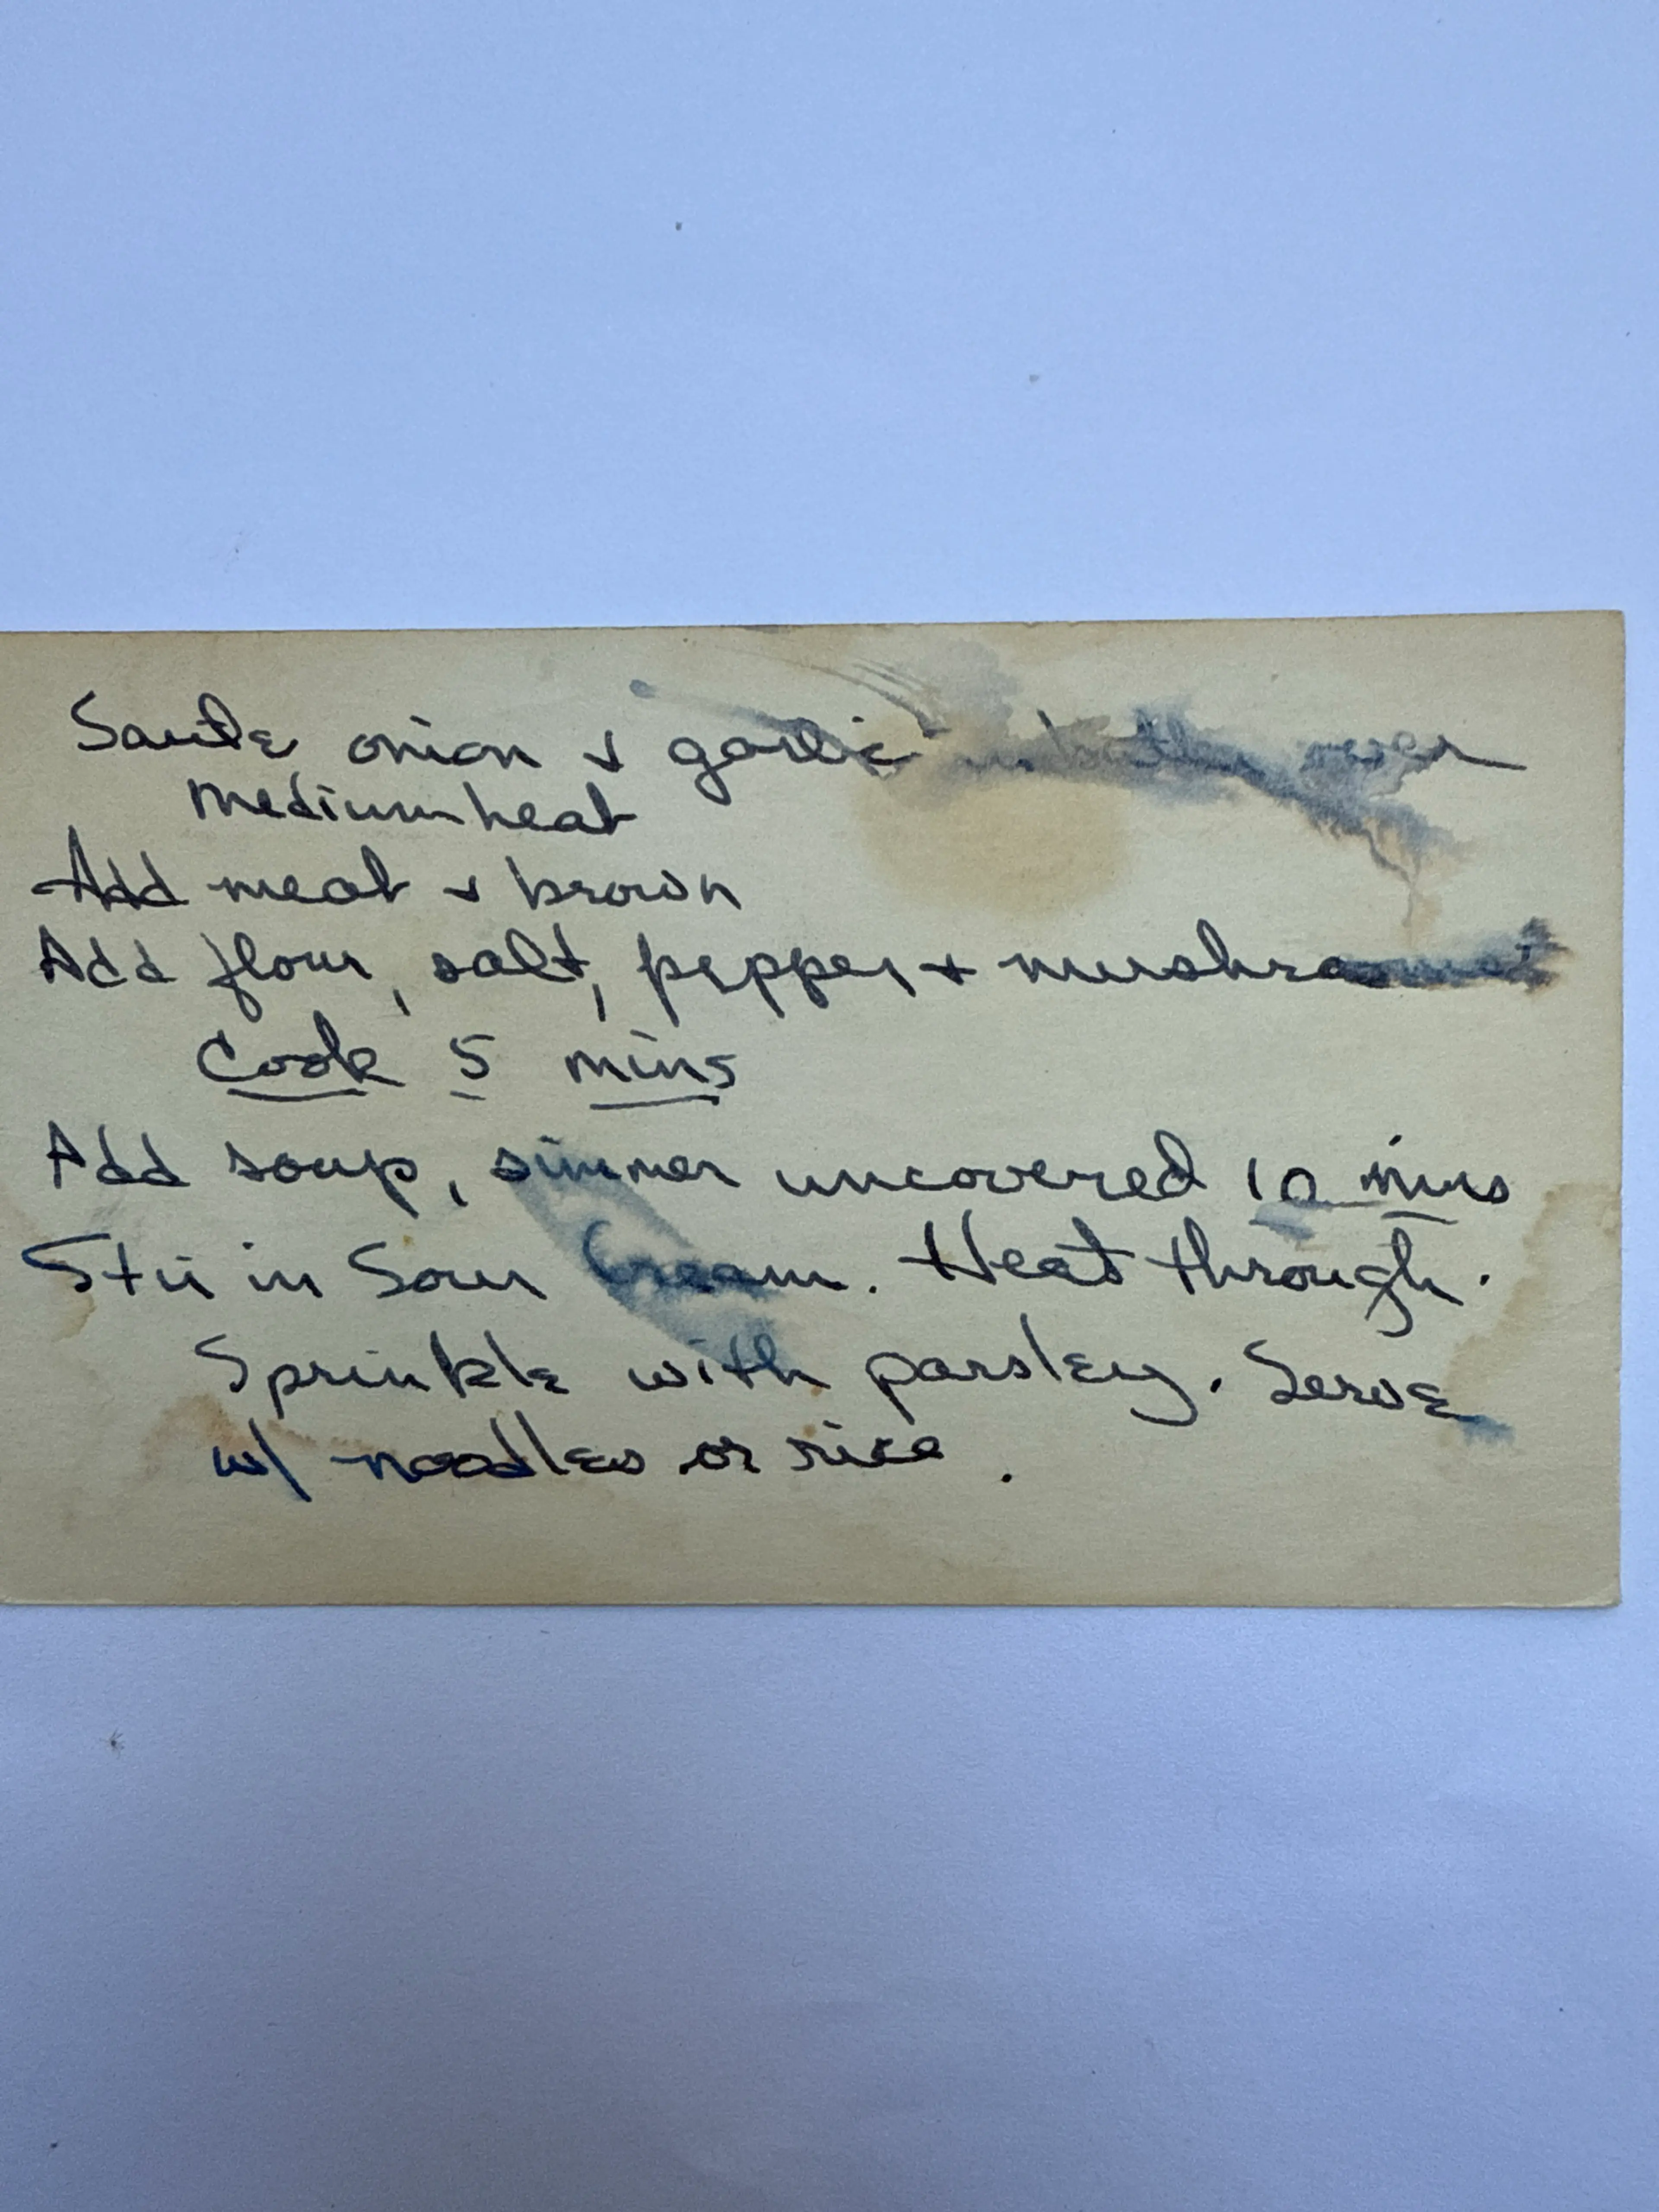 Saute onion & garlic in butter over
medium heat
Add meat & brown
Add flour, salt, pepper & mushrooms
Cook 5 mins
Add soup, simmer uncovered 10 mins
Stir in Sour Cream. Heat through.
Sprinkle with parsley. Serve
w/ noodles or rice.